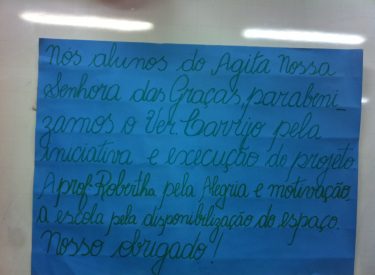 Nós alunos do Agita Nossa
Senhora das Graças, parabeni_
zamos o Ver. Carrijo pela
iniciativa e execução do projeto.
A prof. Robertha pela Alegria e motivação,
a escola pela disponibilização do espaço.
Nosso obrigado!